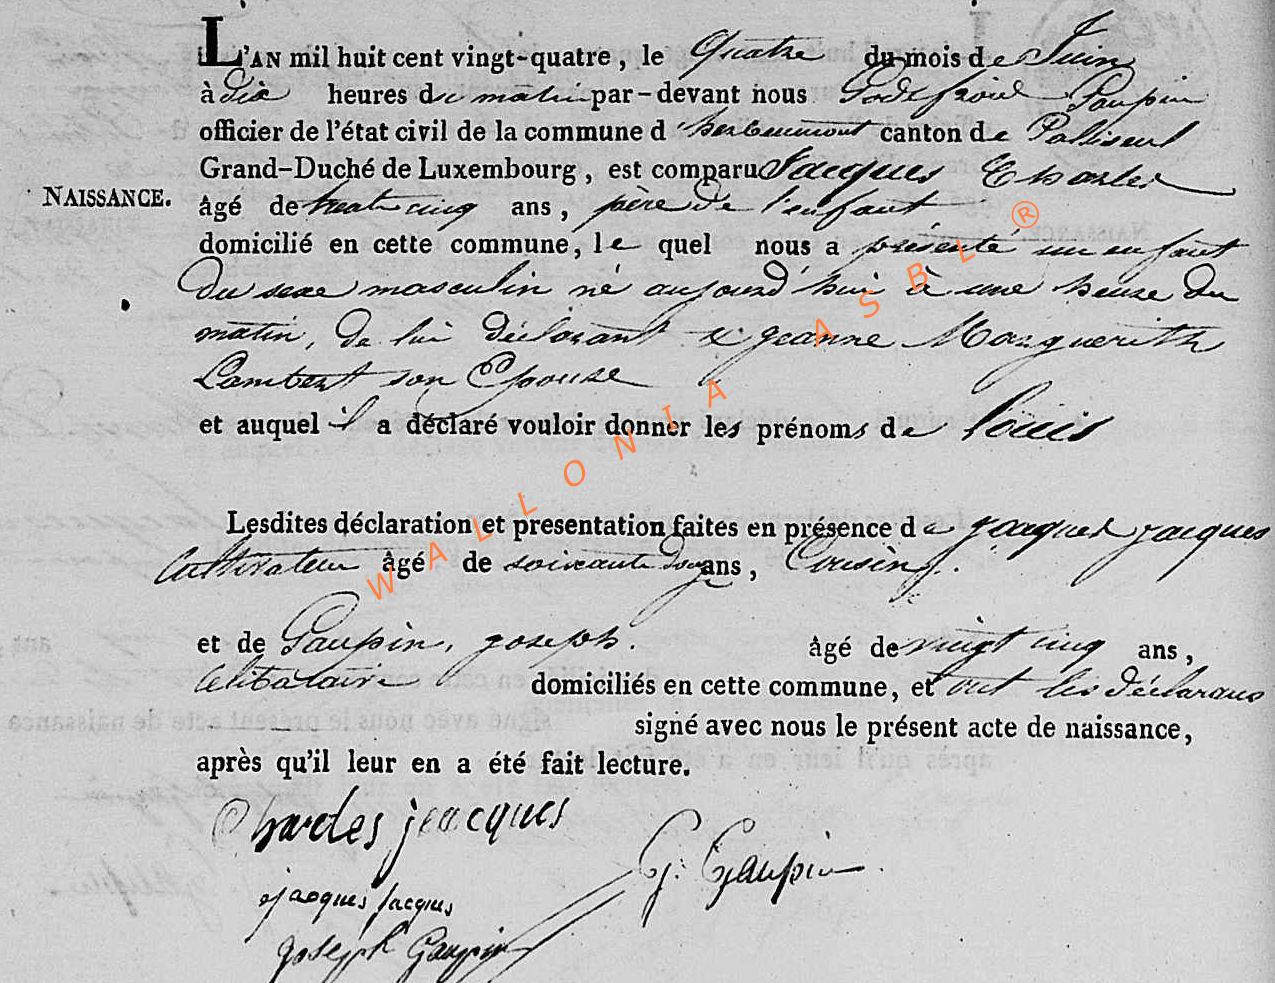 L'AN mil huit cent vingt-quatre, le quatre du mois de Juin
à dix heures du matin par-devant nous Godefroid Gaupin
officier de l'état civil de la commune d'herbeumont canton de Paliseul
Grand-Duché de Luxembourg, est comparu Jacques Charles
NAISSANCE.
âgé de trente cinq ans, père de l'enfant
domicilié en cette commune, le quel nous a présenté un enfant
Du sexe masculin né aujourd'hui à une heure du
matin, de lui déclarant et jeanne Marguerith
Lambert son Epouse
et auquel il a déclaré vouloir donner les prénoms de louis
Lesdites déclaration et presentation faites en présence de jacques jacques
Cultivateur âgé de soixante ans, Cousin
et de Gaupin, joseph. âgé de vingt cinq ans,
Celibataire domiciliés en cette commune, et ont les déclarans
signé avec nous le présent acte de naissance,
après qu'il leur en a été fait lecture.
Charles jacques
G. Gaupin
jacques jacques
joseph Gaupin
WALLONIA ASBL ®